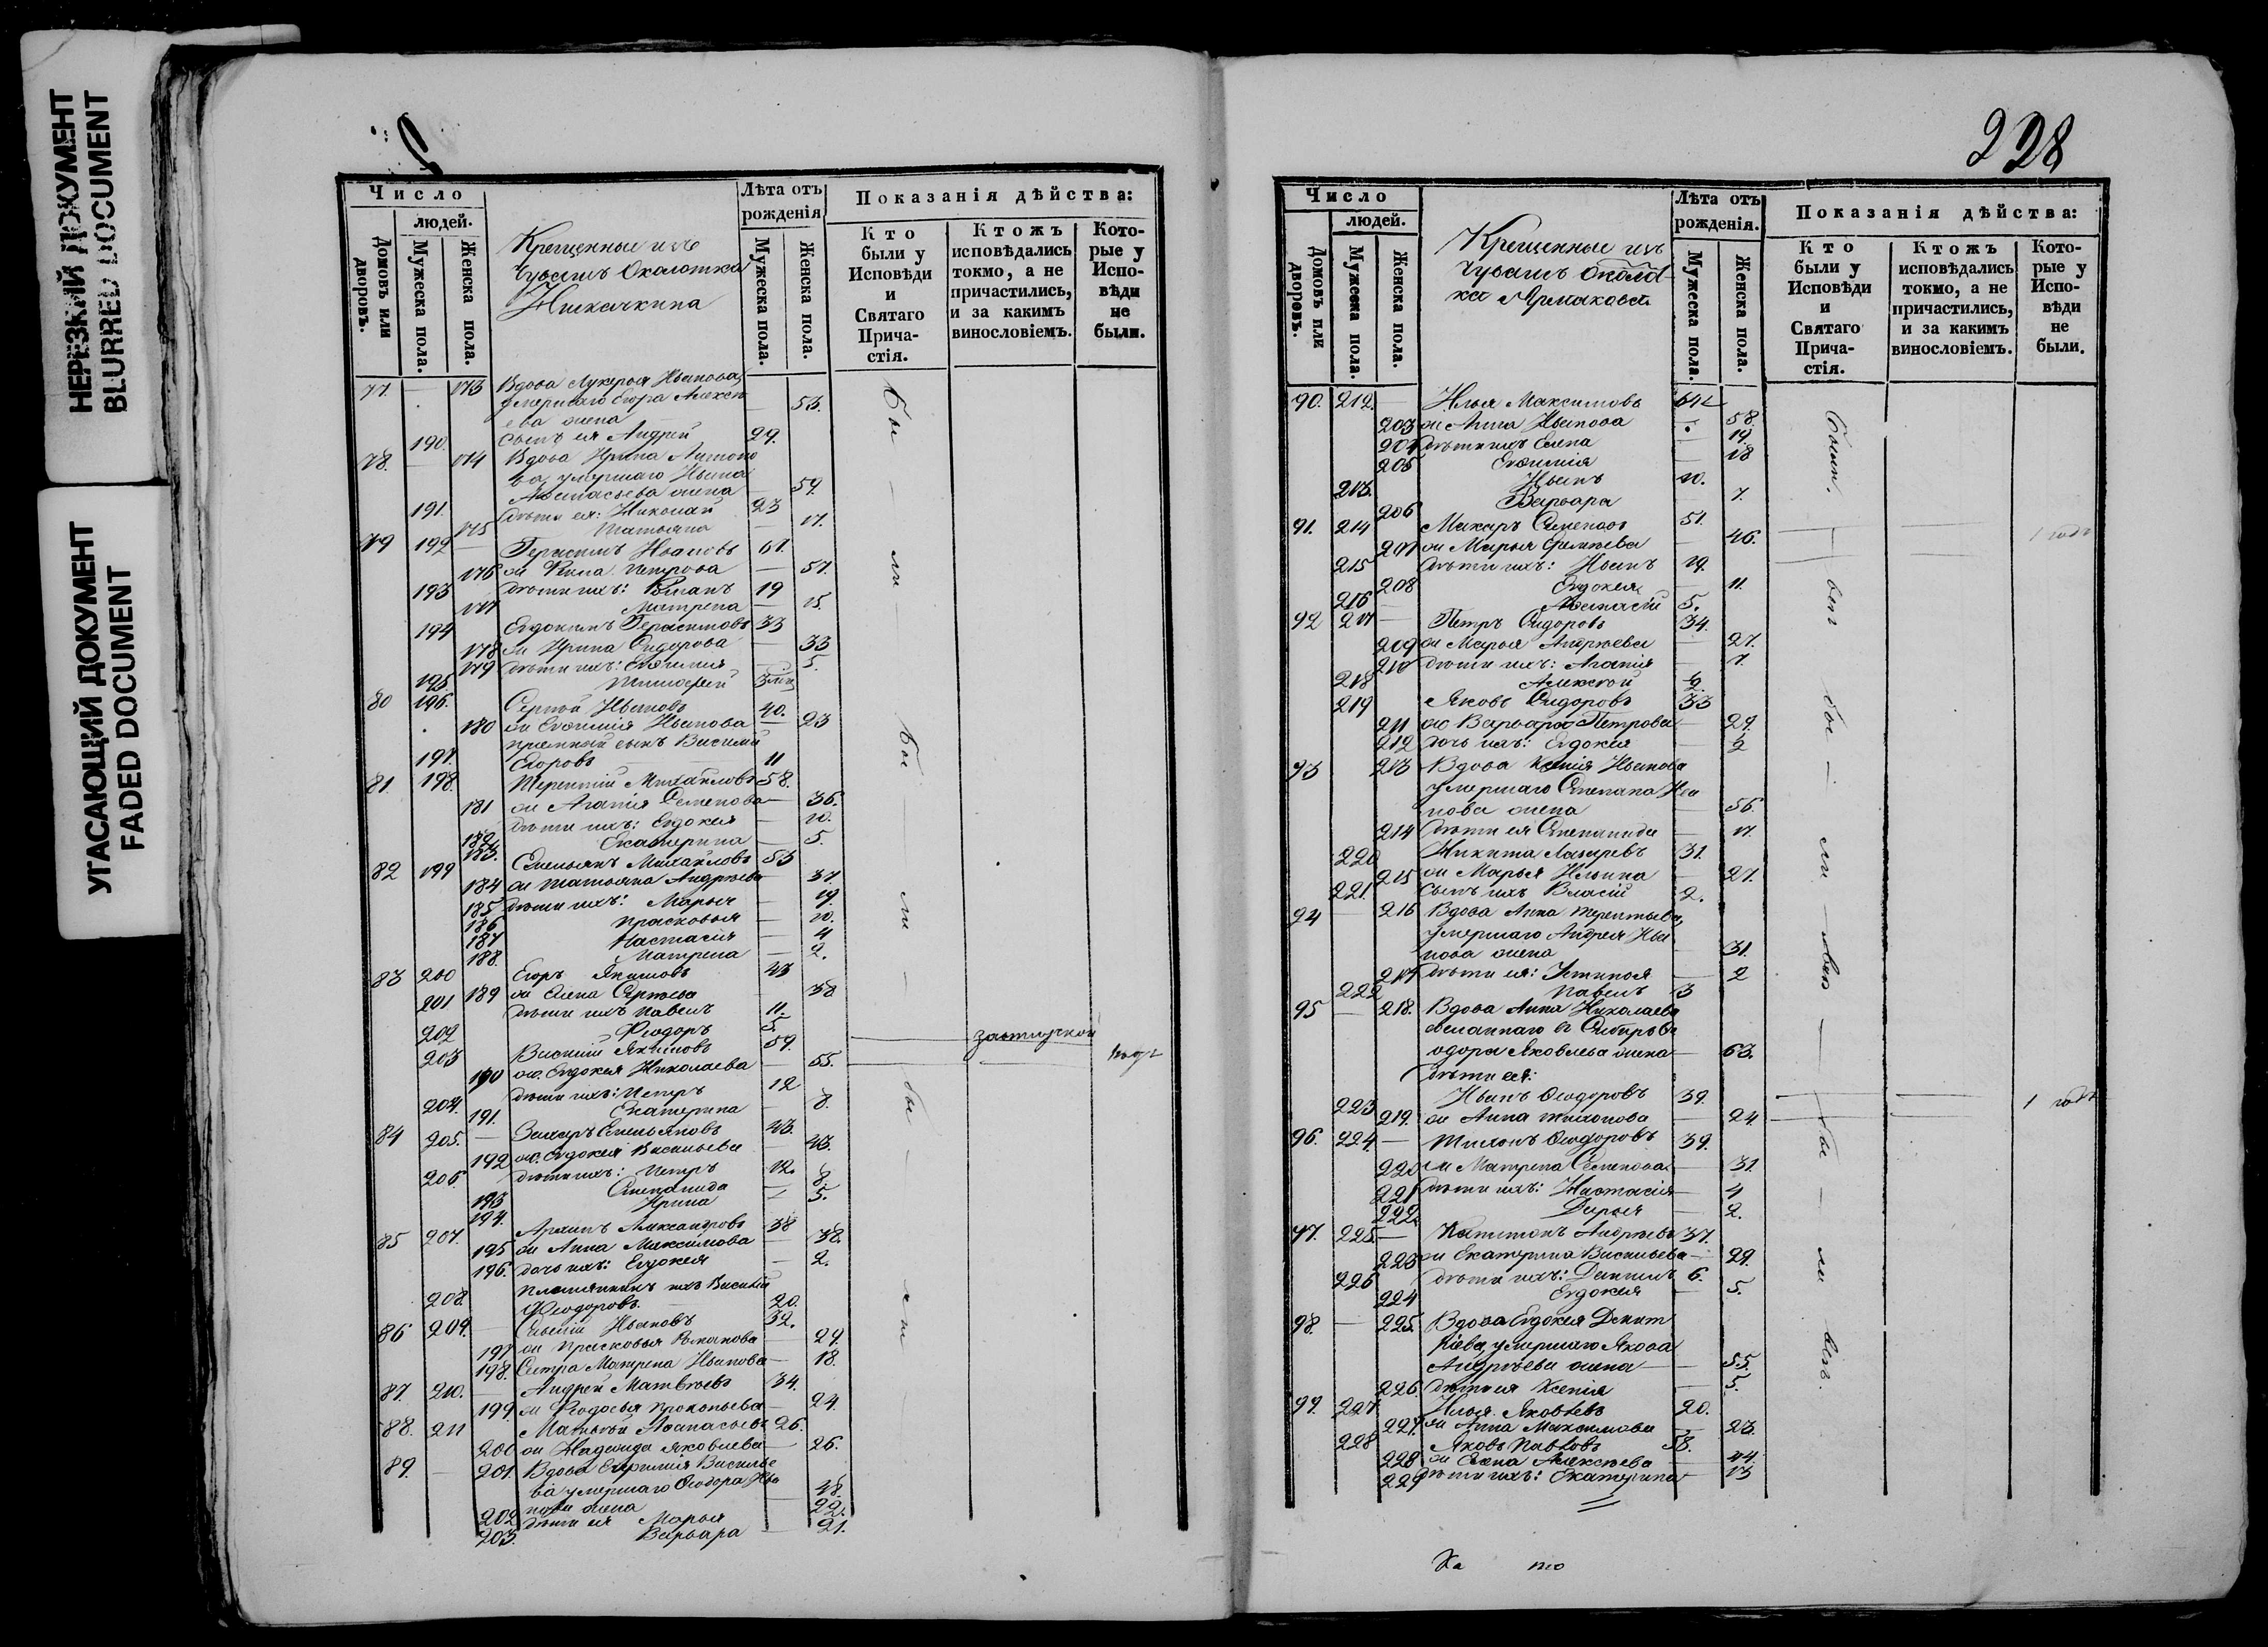 НЕРЕЗКИЙ ДОКУМЕНТ
BLURRED DOCUMENT
УГАСАЮЩИЙ ДОКУМЕНТ
FADED DOCUMENT
Число
людей.
Домовъ или дворовъ.
Мужеска пола.
Женска пола.
Крещенные изъ
Чувашъ Околотка
Лѣта отъ рожденія
Мужеска пола.
Женска пола.
Показанія дѣйства:
Кто были у Исповѣди и Святаго Прича-стія.
Ктожъ исповѣдались токмо, а не причастились, и за какимъ винословіемъ.
Кото-рые у Испо-вѣди не были.
77. — 173 Вдова Лукерья Иванова,
умершаго Егора Алексѣ
ева жена — 53.
190. сынъ ея Андрей 29.
78. — 174 Вдова Ирина Антоно
ва, умершаго Ивана
Афанасьева жена — 59.
191. дѣти ея: Николай 23
175 Татьяна — 17.
79 192 — Герасимъ Ивановъ 61.
176 ж Петрова — 57.
193 дѣти ихъ: Романъ 19
177 Матрена — 15.
194 Евдокимъ Герасимовъ 33
178 ж Ирина Сидорова — 33
179 дѣти ихъ: Евфимия — 5.
195. Тимофей
80 196. Сергѣй Ивановъ 40.
180 ж Евфимія Иванова — 23
приемный сынъ Василий
197. Егоровъ 11
81. 198. Терентій Михайловъ 58.
181 ж Агапія Семенова — 36.
182 дѣти ихъ: Евдокия — 10.
183. Екатерина — 5.
82 199 Емельянъ Михайловъ 53
184 ж Татьяна Андреева 37.
185 дѣти ихъ: Марья —
186 Прасковья — 10.
187 Настасія — 4
188. Матрена — 2.
83 200 Егоръ Якимовъ 43
189 ж Елена Сергѣева 38
201 дѣти ихъ Павелъ 11.
202 Ѳеодоръ 5.
203 Василій Якимовъ 59.
190 ж. Евдокея Николаева — 55.
204. дѣти ихъ: Петръ 12
191. Екатерина — 8.
84 205. — Захаръ Емельяновъ 43.
192 ж. Евдокея Васильева 43.
206. дѣти ихъ: Петръ 12.
193 Степанида — 8
194. Ирина — 5.
85 207. Архипъ Александровъ 38
195 ж Анна Максимова — 38.
196. дочь ихъ: Евдокея — 2.
208. племянникъ ихъ Василій
Ѳеодоровъ. 20.
86 209. — Савелій Ивановъ 32.
197 ж Прасковья Романова — 29.
198. Сестра Матрена Иванова — 18.
87. 210. — Андрей Матвѣевъ 34.
199. ж Ѳеодосья Прокопьева — 24.
88. 211 Матвѣй Афанасьевъ 26.
200 ж Надежда Яковлева — 26.
89. — 201. Вдова Ефимия Василье
ва умершаго Ѳеодора Ива
нова жена 48.
202. дѣти ея Марья 22.
203. Варвара — 21.
бы — ли — бы — ли — бы — ли
228
Число
людей.
Домовъ или дворовъ.
Мужеска пола.
Женска пола.
Крещенные изъ
Чувашъ Околот
ка Ярмакова
Лѣта отъ рожденія.
Мужеска пола.
Женска пола.
Показанія дѣйства:
Кто были у Исповѣди и Святаго Прича-стія.
Ктожъ исповѣдались токмо, а не причастились, и за какимъ винословіемъ.
Кото-рые у Испо-вѣди не были.
90. 212. — Илья Максимовъ 64
203 ж Анна Иванова 58.
204 дѣти ихъ Елена — 19.
205 Евфимія — 18
213. Иванъ 10.
206 Варвара — 7.
91. 214 Макаръ Семеновъ 51.
207 ж Марья — 46. 1 годъ
215 дѣти ихъ: Иванъ 19.
208 Евдокея 11.
216 — Афанасій 5.
92 217 — Петръ Сидоровъ 34.
209 ж Марья Андреева — 27.
210 дѣти ихъ: Агапія — 7.
218 Алексѣй 2.
219 Яковъ Сидоровъ 33
211 ж Варвара Петрова — 29.
212 дочь ихъ: Евдокея — 2
93 213 Вдова Ксенія Иванова
умершаго Степана Ива
нова жена 56.
214 дѣти ея Степанида — 17.
220 Никита Лазаревъ 31.
215 ж Марья Ильина — 27.
221. сынъ ихъ Власій 2.
94 — 216 Вдова Анна Терентьева,
умершаго Андрея Ива
нова жена — 31.
217 дѣти ея: Устинья — 2
222 Павелъ 3
95 — 218. Вдова Анна Николаева
сосланнаго въ Сибирь Ѳе
одора Яковлева жена — 63.
дѣти ея:
223 Иванъ Ѳеодоровъ 39.
219. ж Анна Тихонова — 24. 1 годъ
96. 224. — Тихонъ Ѳеодоровъ 39.
220 ж Матрена Семенова — 31.
221 дѣти ихъ: Настасія — 4
222. Дарья — 2.
97. 225. — Капитонъ Андреевъ 37.
223 ж Екатерина Васильева — 29.
226 дѣти ихъ: Даниилъ 6.
224 Евдокея — 5.
98. — 225. Вдова Евдокея Демит
ріева, умершаго Якова
Андреева жена — 55.
226. дѣти ея Ксенія — 5.
99. 227. Илья Яковлевъ 20.
227. ж Анна Максимова — 23.
228 Яковъ Павловъ 58.
228 ж Елена Алексѣева — 44.
229 дѣти ихъ: Екатерина — 13
были.